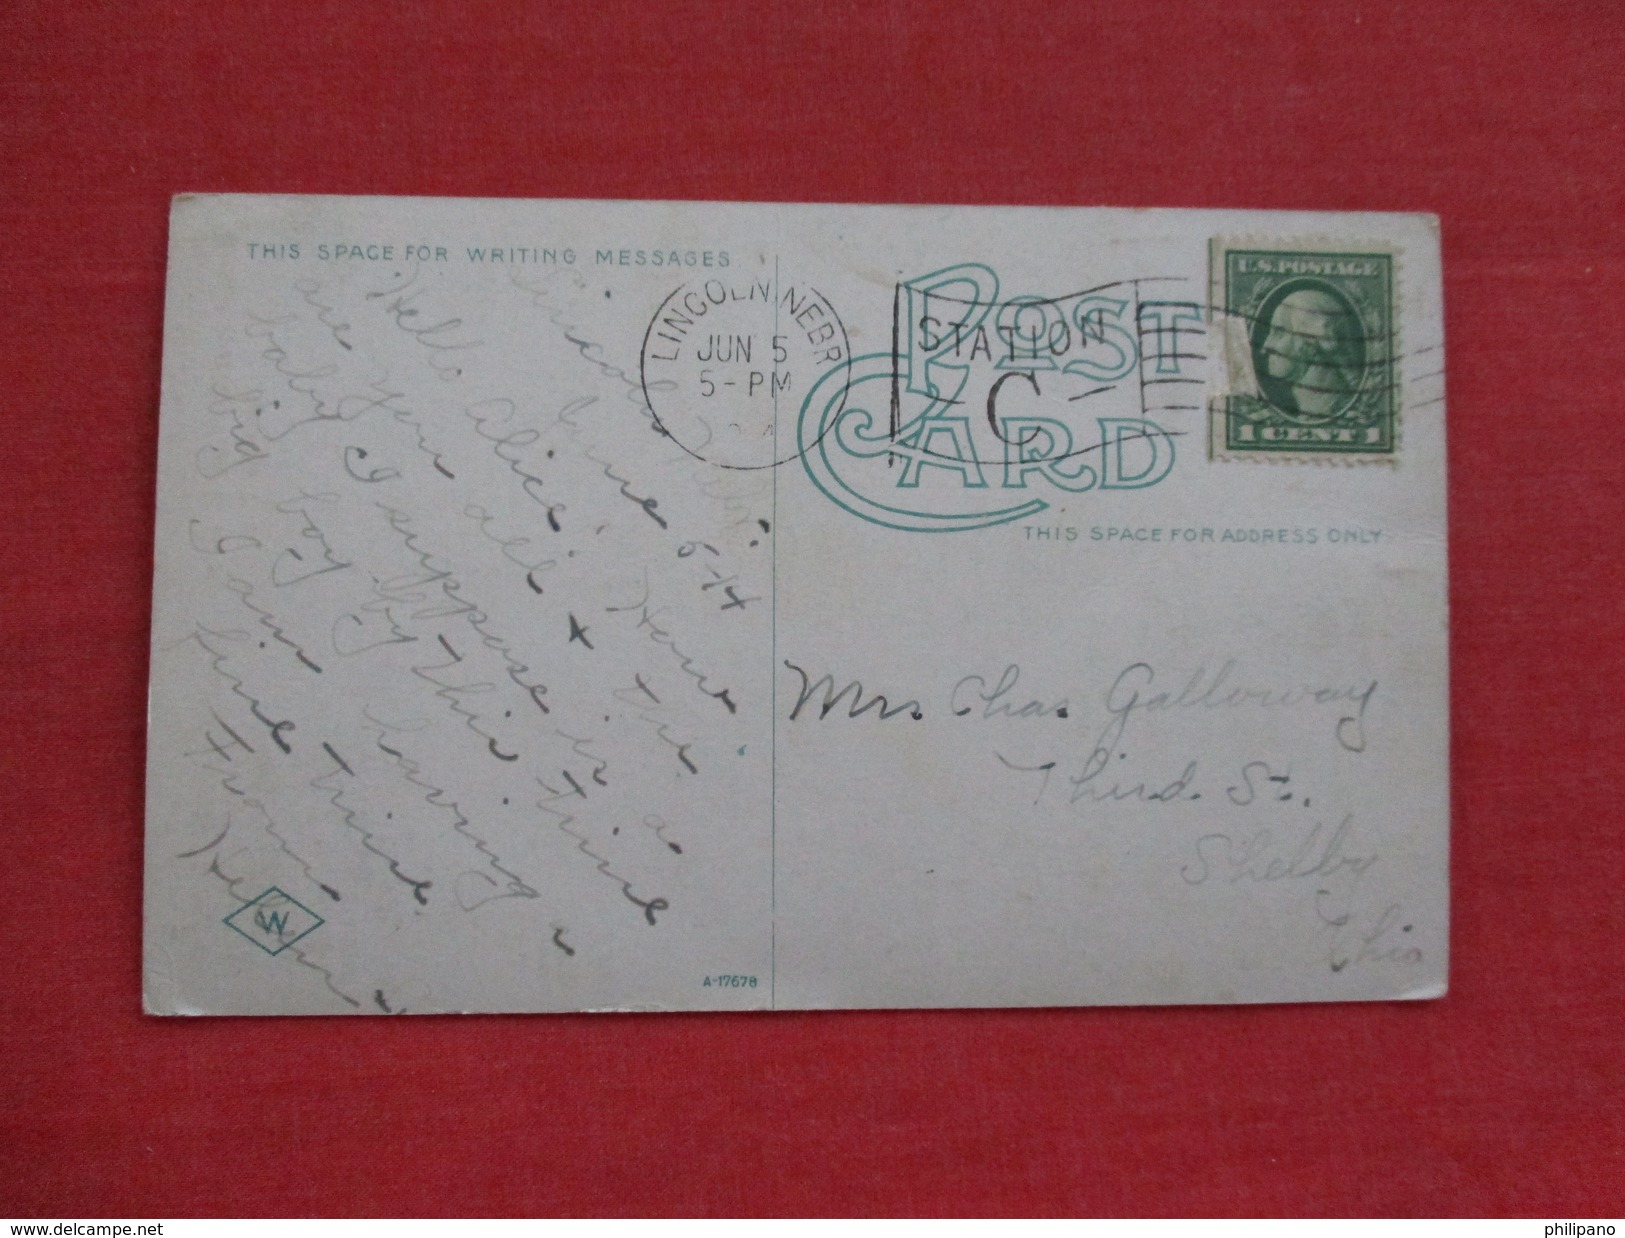 THIS SPACE FOR WRITING MESSAGES
Lincoln Nebr.
June 5-14
Hello Alice! How
are you all & the
baby I suppose is a
big boy by this time
I am having a
fine time.
From
Helen
W
A-17678
LINCOLN, NEBR
JUN 5
5-PM
STATION
C
POST
CARD
THIS SPACE FOR ADDRESS ONLY
U.S. POSTAGE
1 CENT 1
Mrs Chas Galloway
Third St.
Shelby
Ohio
www.delcampe.net
philipano